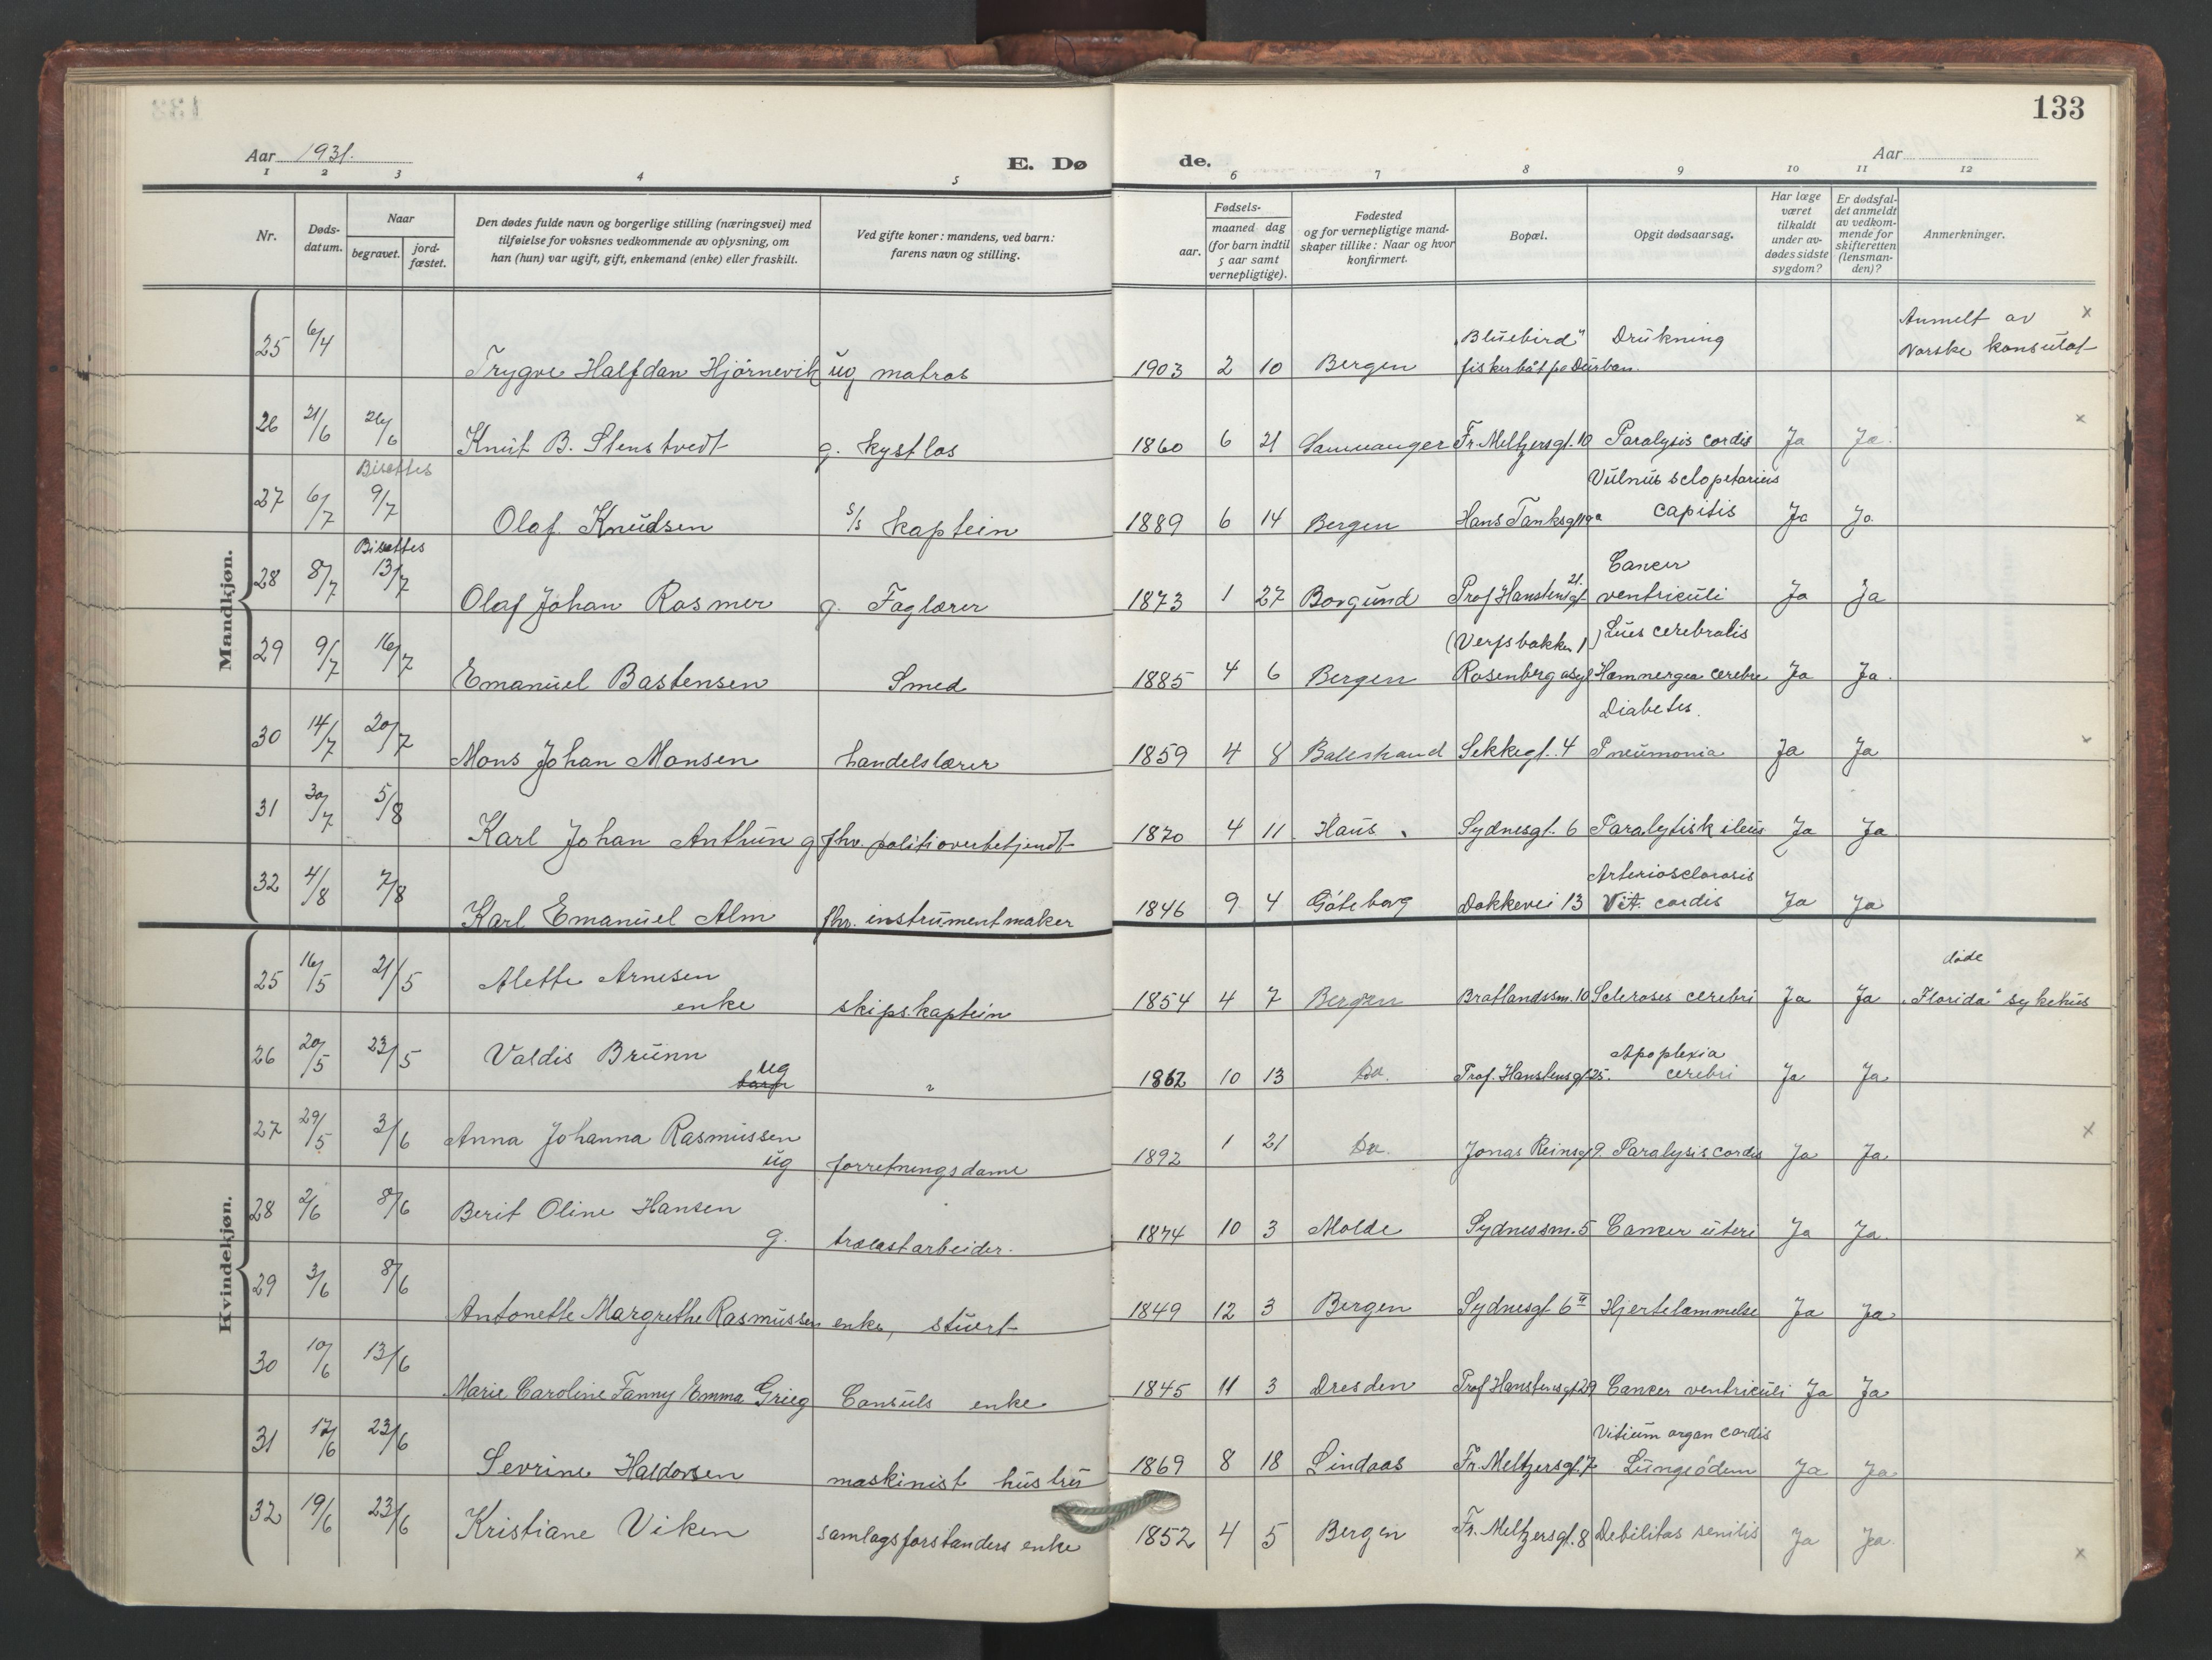 133
Aar 1931.
E. Døde.
Aar
1 2 3 4 5 6 7 8 9 10 11 12
Nr.
Døds-datum.
Naar
begravet.
jord-fæstet.
Den dødes fulde navn og borgerlige stilling (næringsvei) med
tilføielse for voksnes vedkommende av oplysning, om
han (hun) var ugift, gift, enkemand (enke) eller fraskilt.
Ved gifte koner: mandens, ved barn:
farens navn og stilling.
Fødsels-
aar. maaned dag
(for barn indtil
5 aar samt
vernepligtige).
Fødested
og for vernepligtige mand-
skaper tillike: Naar og hvor
konfirmert.
Bopæl.
Opgit dødsaarsag.
Har læge
været
tilkaldt
under av-
dødes sidste
sygdom?
Er dødsfal-
det anmeldt
av vedkom-
mende for
skifteretten
(lensman-
den)?
Anmerkninger.
Mandkjøn.
25 6/4 Trygve Halfdan Hjörnevik ug matros 1903 2 10 Bergen „Bluebird" fiskerbåt på Durban. Drukning Anmelt av Norske konsulat x
26 21/6 26/6 Knut B. Stenstvedt g. kystlos 1860 6 21 Samnanger Fr. Meltzersgt. 10 Paralysis cordis Ja Ja x
27 6/7 Bisettes 9/7 Olaf Knudsen s/s kaptein 1889 6 14 Bergen Hans Tanksgt 19a Vulnus sclopetarius capitis Ja Ja
28 8/7 Bisettes 13/7 Olaf Johan Rasmer g. Faglærer 1873 1 27 Borgund Prof Hanstensgt 21. Cancer ventriculi Ja Ja
29 9/7 16/7 Emanuel Bastensen Smed 1885 4 6 Bergen (Verfsbakken 1) Rosenberg asyl Lues cerebralis Hæmmergea cerebre Ja Ja
30 14/7 20/7 Mons Johan Monsen handelslærer 1859 4 8 Balestrand Sekkegt. 4 Diabetes. Pneumonia Ja Ja x
31 30/7 5/8 Karl Johan Anthun g fhv. politioverbetjendt 1870 4 11 Haus Sydnesgt. 6 Paralytisk ileus Ja Ja
32 4/8 7/8 Karl Emanuel Alm fhv. instrumentmaker 1846 9 4 Göteborg Dokkevei 13 Arteriosclorosis Vit. cordis Ja Ja
Kvindekjøn.
25 16/5 21/5 Alette Arnesen enke skipskaptein 1854 4 7 Bergen Bratlandssm. 10 Scleroses cerebri Ja Ja døde „Florida" sykehus
26 20/5 23/5 Valdis Brunn ug " 1862 10 13 Do. Prof. Hanstensgt 25. Apoplexia cerebri Ja Ja
27 29/5 3/6 Anna Johanna Rasmussen ug forretningsdame 1892 1 21 Do. Jonas Reinsgt 9 Paralysis cordis Ja Ja x
28 2/6 8/6 Berit Oline Hansen g. trælastarbeider. 1874 10 3 Molde Sydnessm. 5 Cancer uteri Ja Ja
29 3/6 8/6 Antonette Margrethe Rasmussen enke, stuert 1849 12 3 Bergen Sydnesgt 6a Hjertelammelse Ja Ja
30 10/6 13/6 Marie Caroline Fanny Emma Grieg Consuls enke 1845 11 3 Dresden Prof Hanstensgt 29 Cancer ventriculi Ja Ja
31 17/6 23/6 Sevrine Haldorsen maskinist hustru 1869 8 18 Lindaas Fr. Meltzersgt. 7 Vitium organ cordis Lungeödem Ja Ja
32 19/6 23/6 Kristiane Viken samlagsforstanders enke 1852 4 5 Bergen Fr. Meltzersgt. 8 Debilitas senilis Ja Ja x